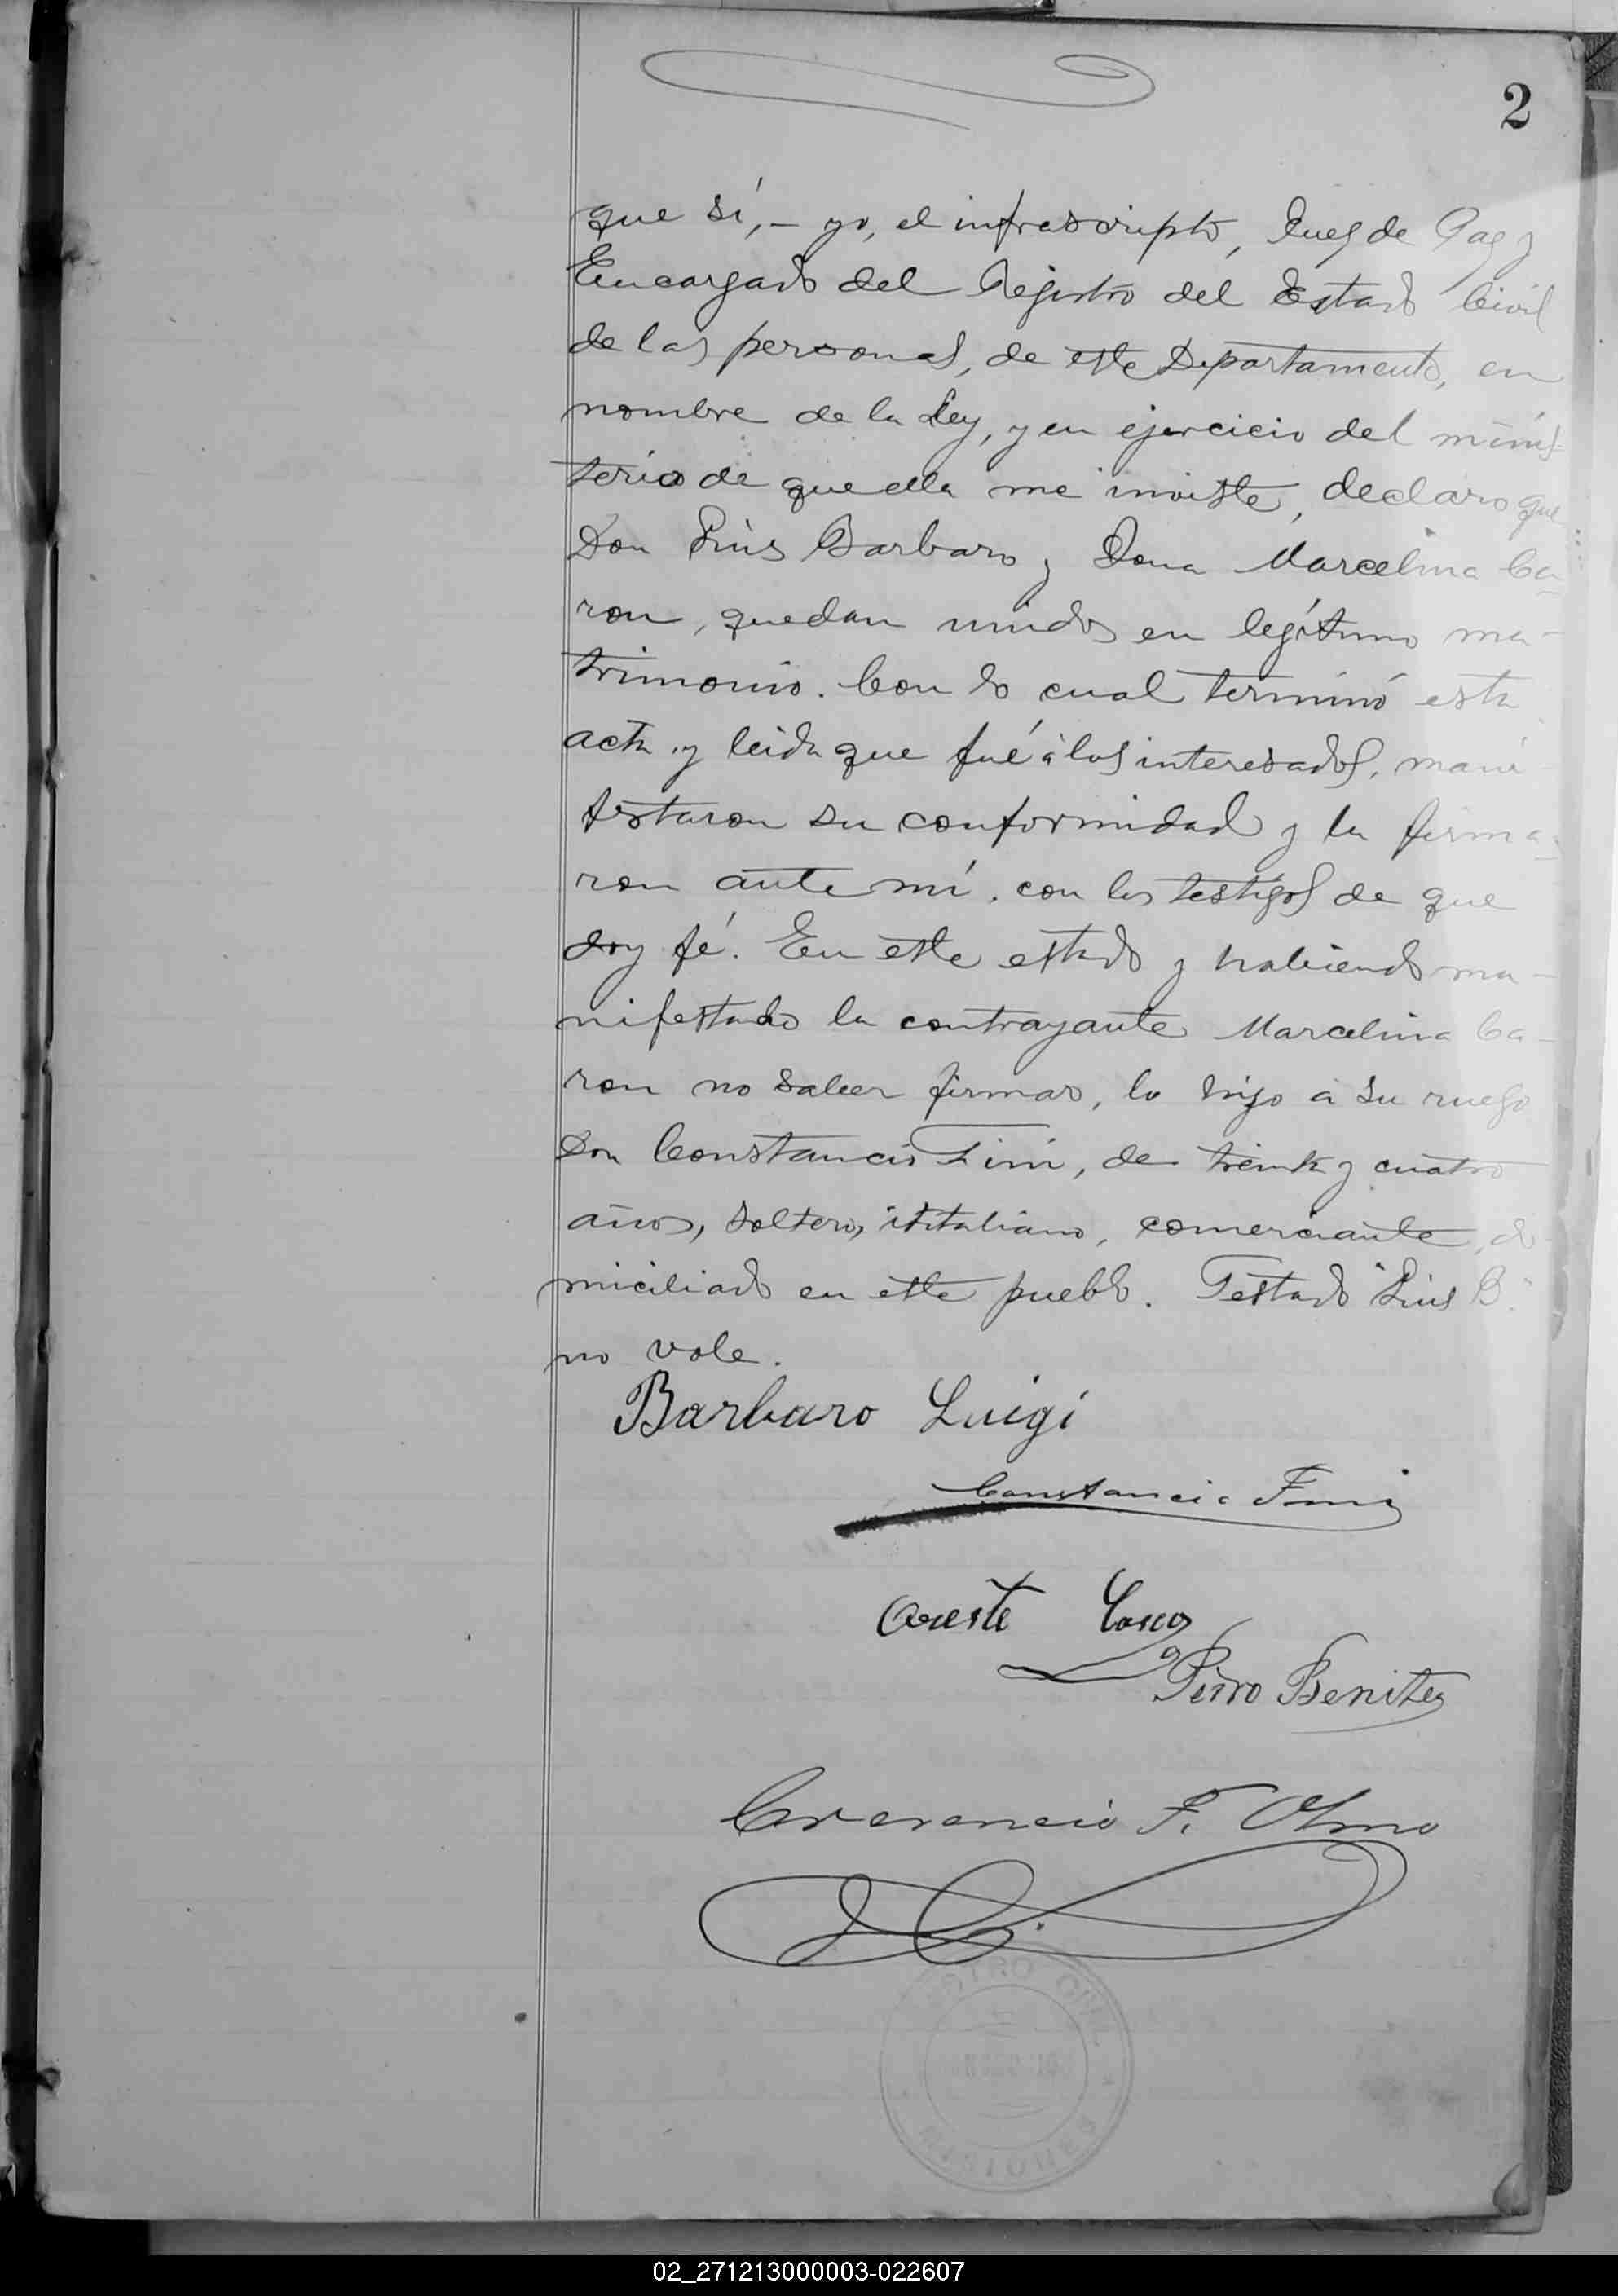 2
que sí, – yo, el infrascripto, Juez de Paz y
Encargado del Registro del Estado Civil
de las personas, de este Departamento, en
nombre de la Ley, y en ejercicio del minis-
terio de que ella me inviste, declaro que
Don Luis Barbaro y Dona Marcelina Ca-
ron, quedan unidos en legítimo ma-
trimonio. Con lo cual terminó esta
acta y leida que fué á los interesados, mani-
festaron su conformidad y la firma-
ron ante mí, con los testigos de que
doy fé. En este estado y habiendo ma-
nifestado la contrayante Marcelina Ca-
ron no saber firmar, lo hizo á su ruego
Don Constancio Fini, de treinta y cuatro
años, soltero, ititaliano, comerciante, do
miciliado en este pueblo. Testado "Luis B."
no vale.
Barbaro Luigi
Constancio Fini
Oreste
Pedro Benitez
Crecencio F. Olmo
REGISTRO CIVIL
MISIONES
02_271213000003-022607